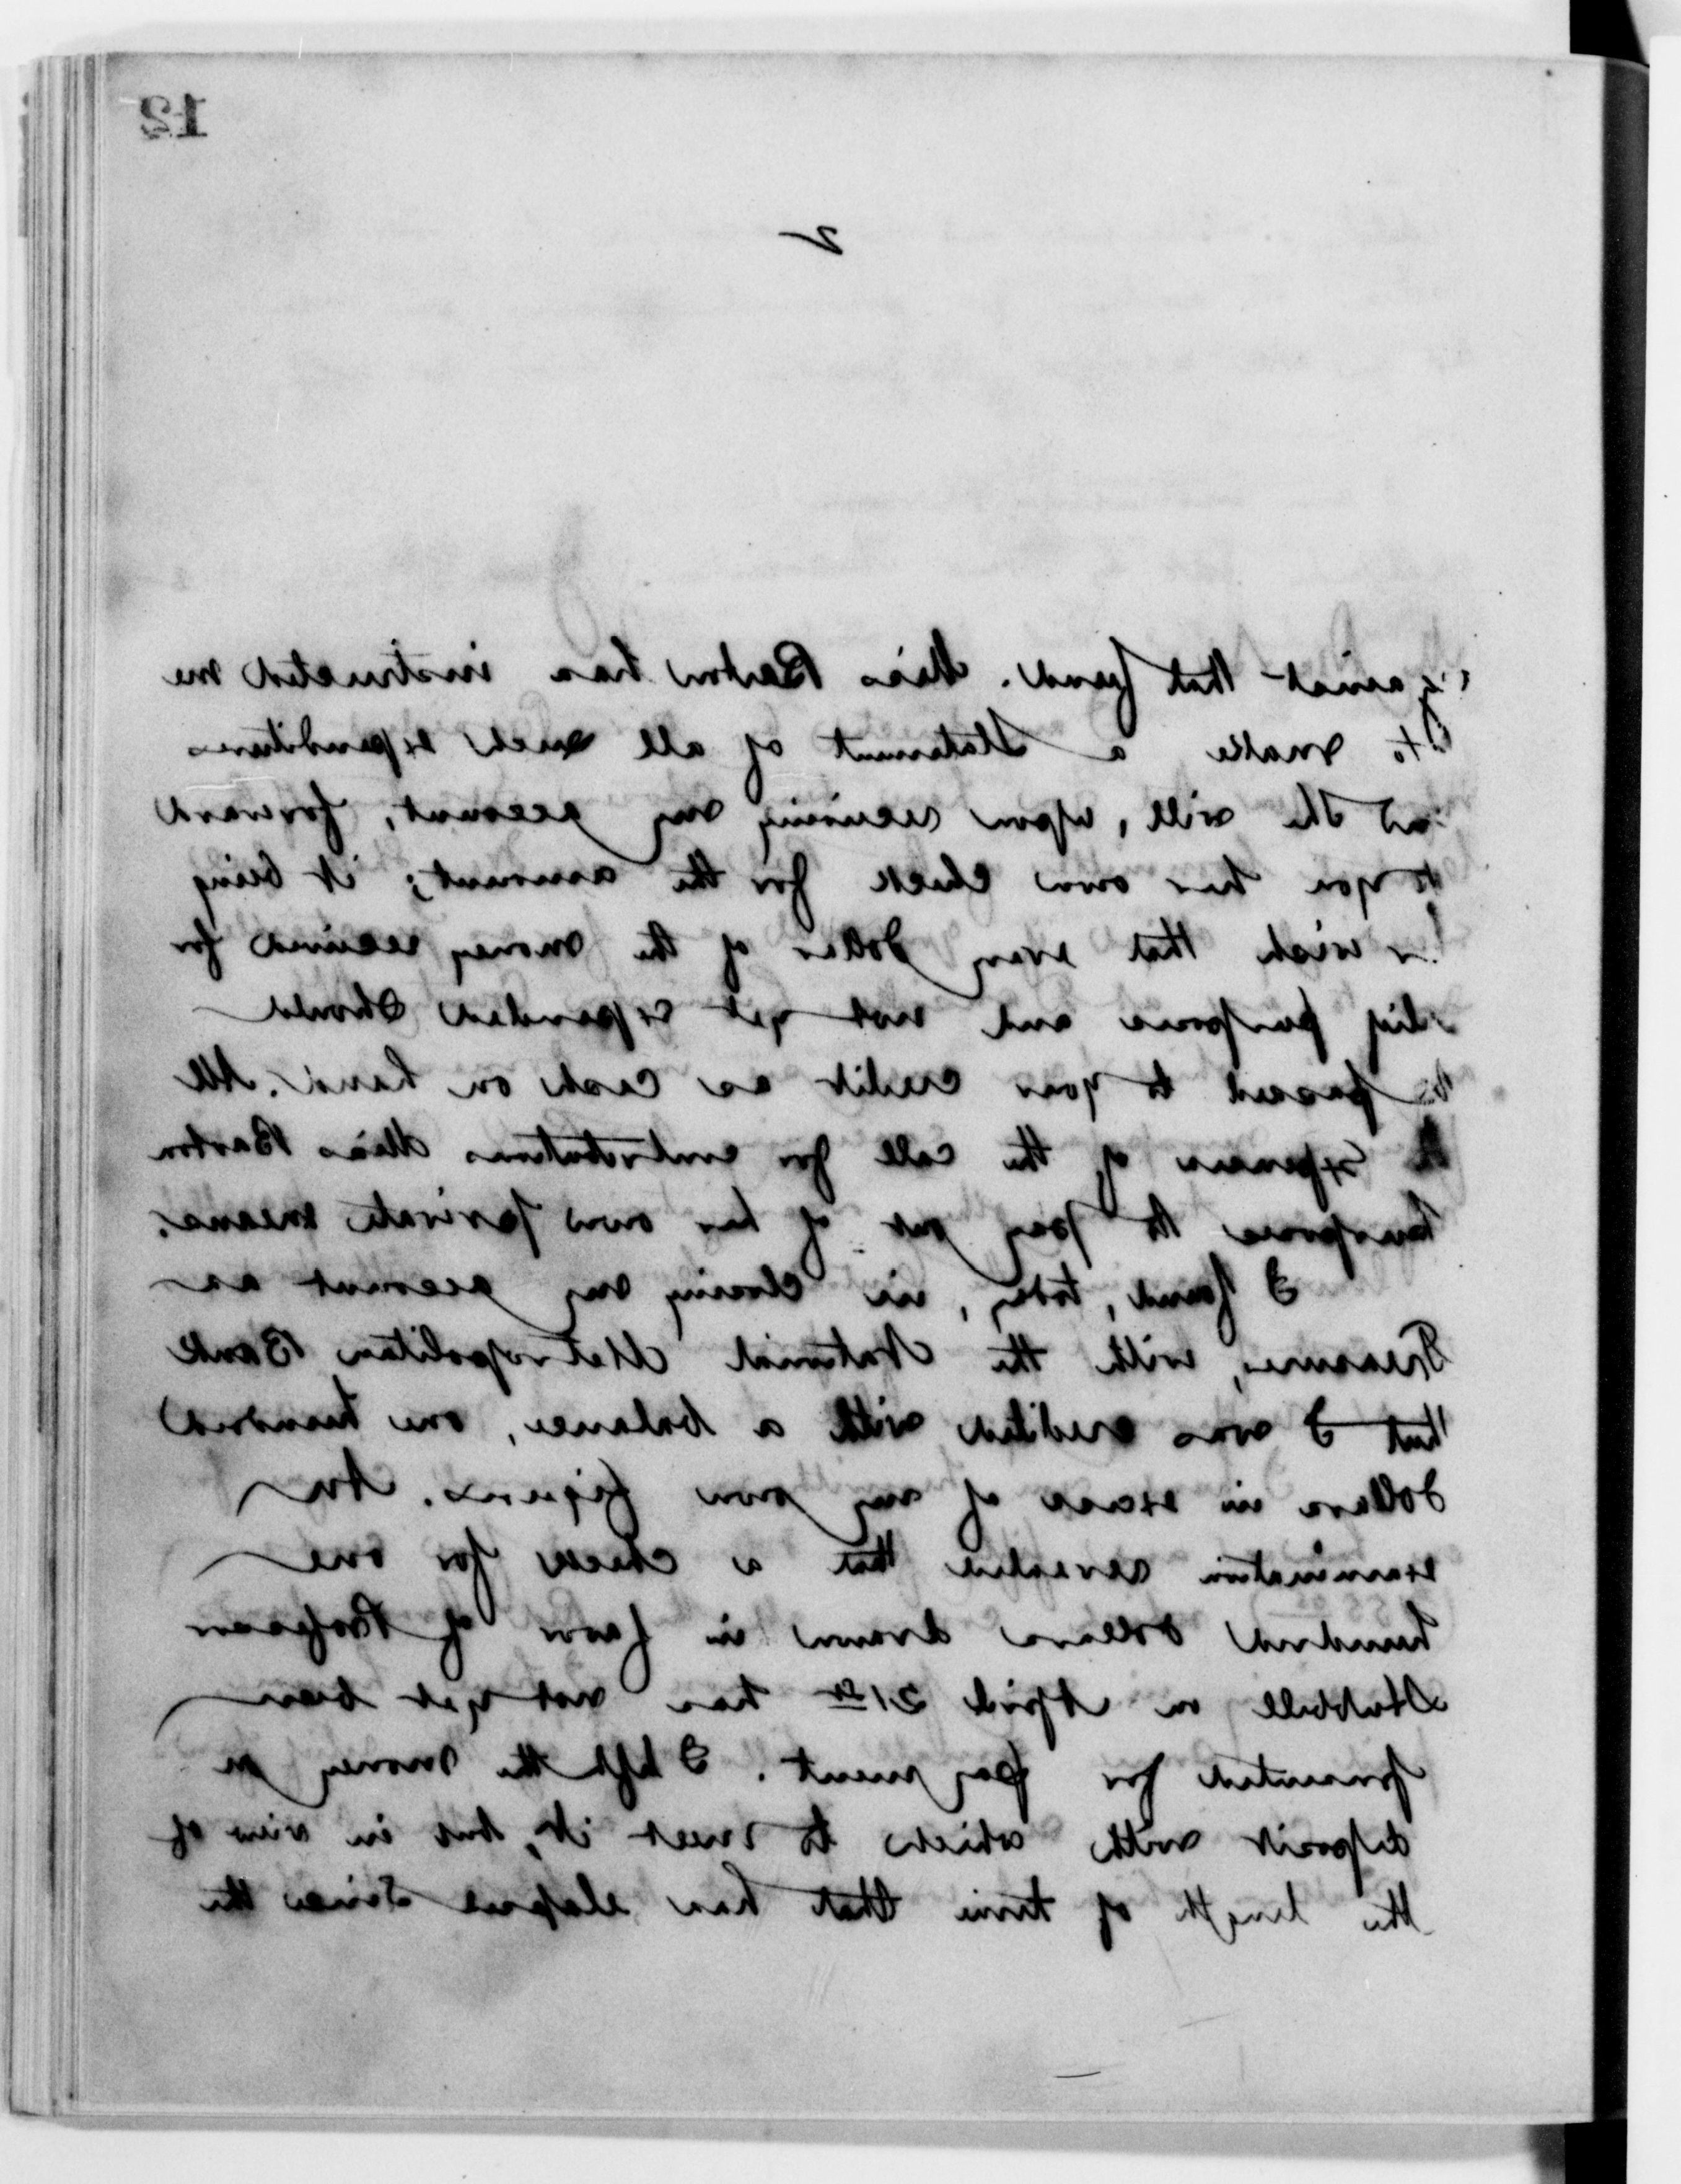 12
2
against that fund. Miss Barton has instructed me
to make a statement of all such expenditures
and she will, upon receiving my account, forward
to you her own check for the amount; it being
her wish that every dollar of the money received for
this purpose and not yet expended should
be passed to your credit as cash on hand. All
expenses of the call for contributions Miss Barton
purposes to pay out of her own private means.
I found, today, in closing my account as
Treasurer, with the National Metropolitan Bank
that I was credited with a balance, one hundred
dollars in excess of my own figures. An
examination revealed that a check for one
hundred dollars drawn in favor of Professor
Hubbell on April 21st has not yet been
presented for payment. I left the money on
deposit with which to meet it, but in view of
the length of time that has elapsed since the